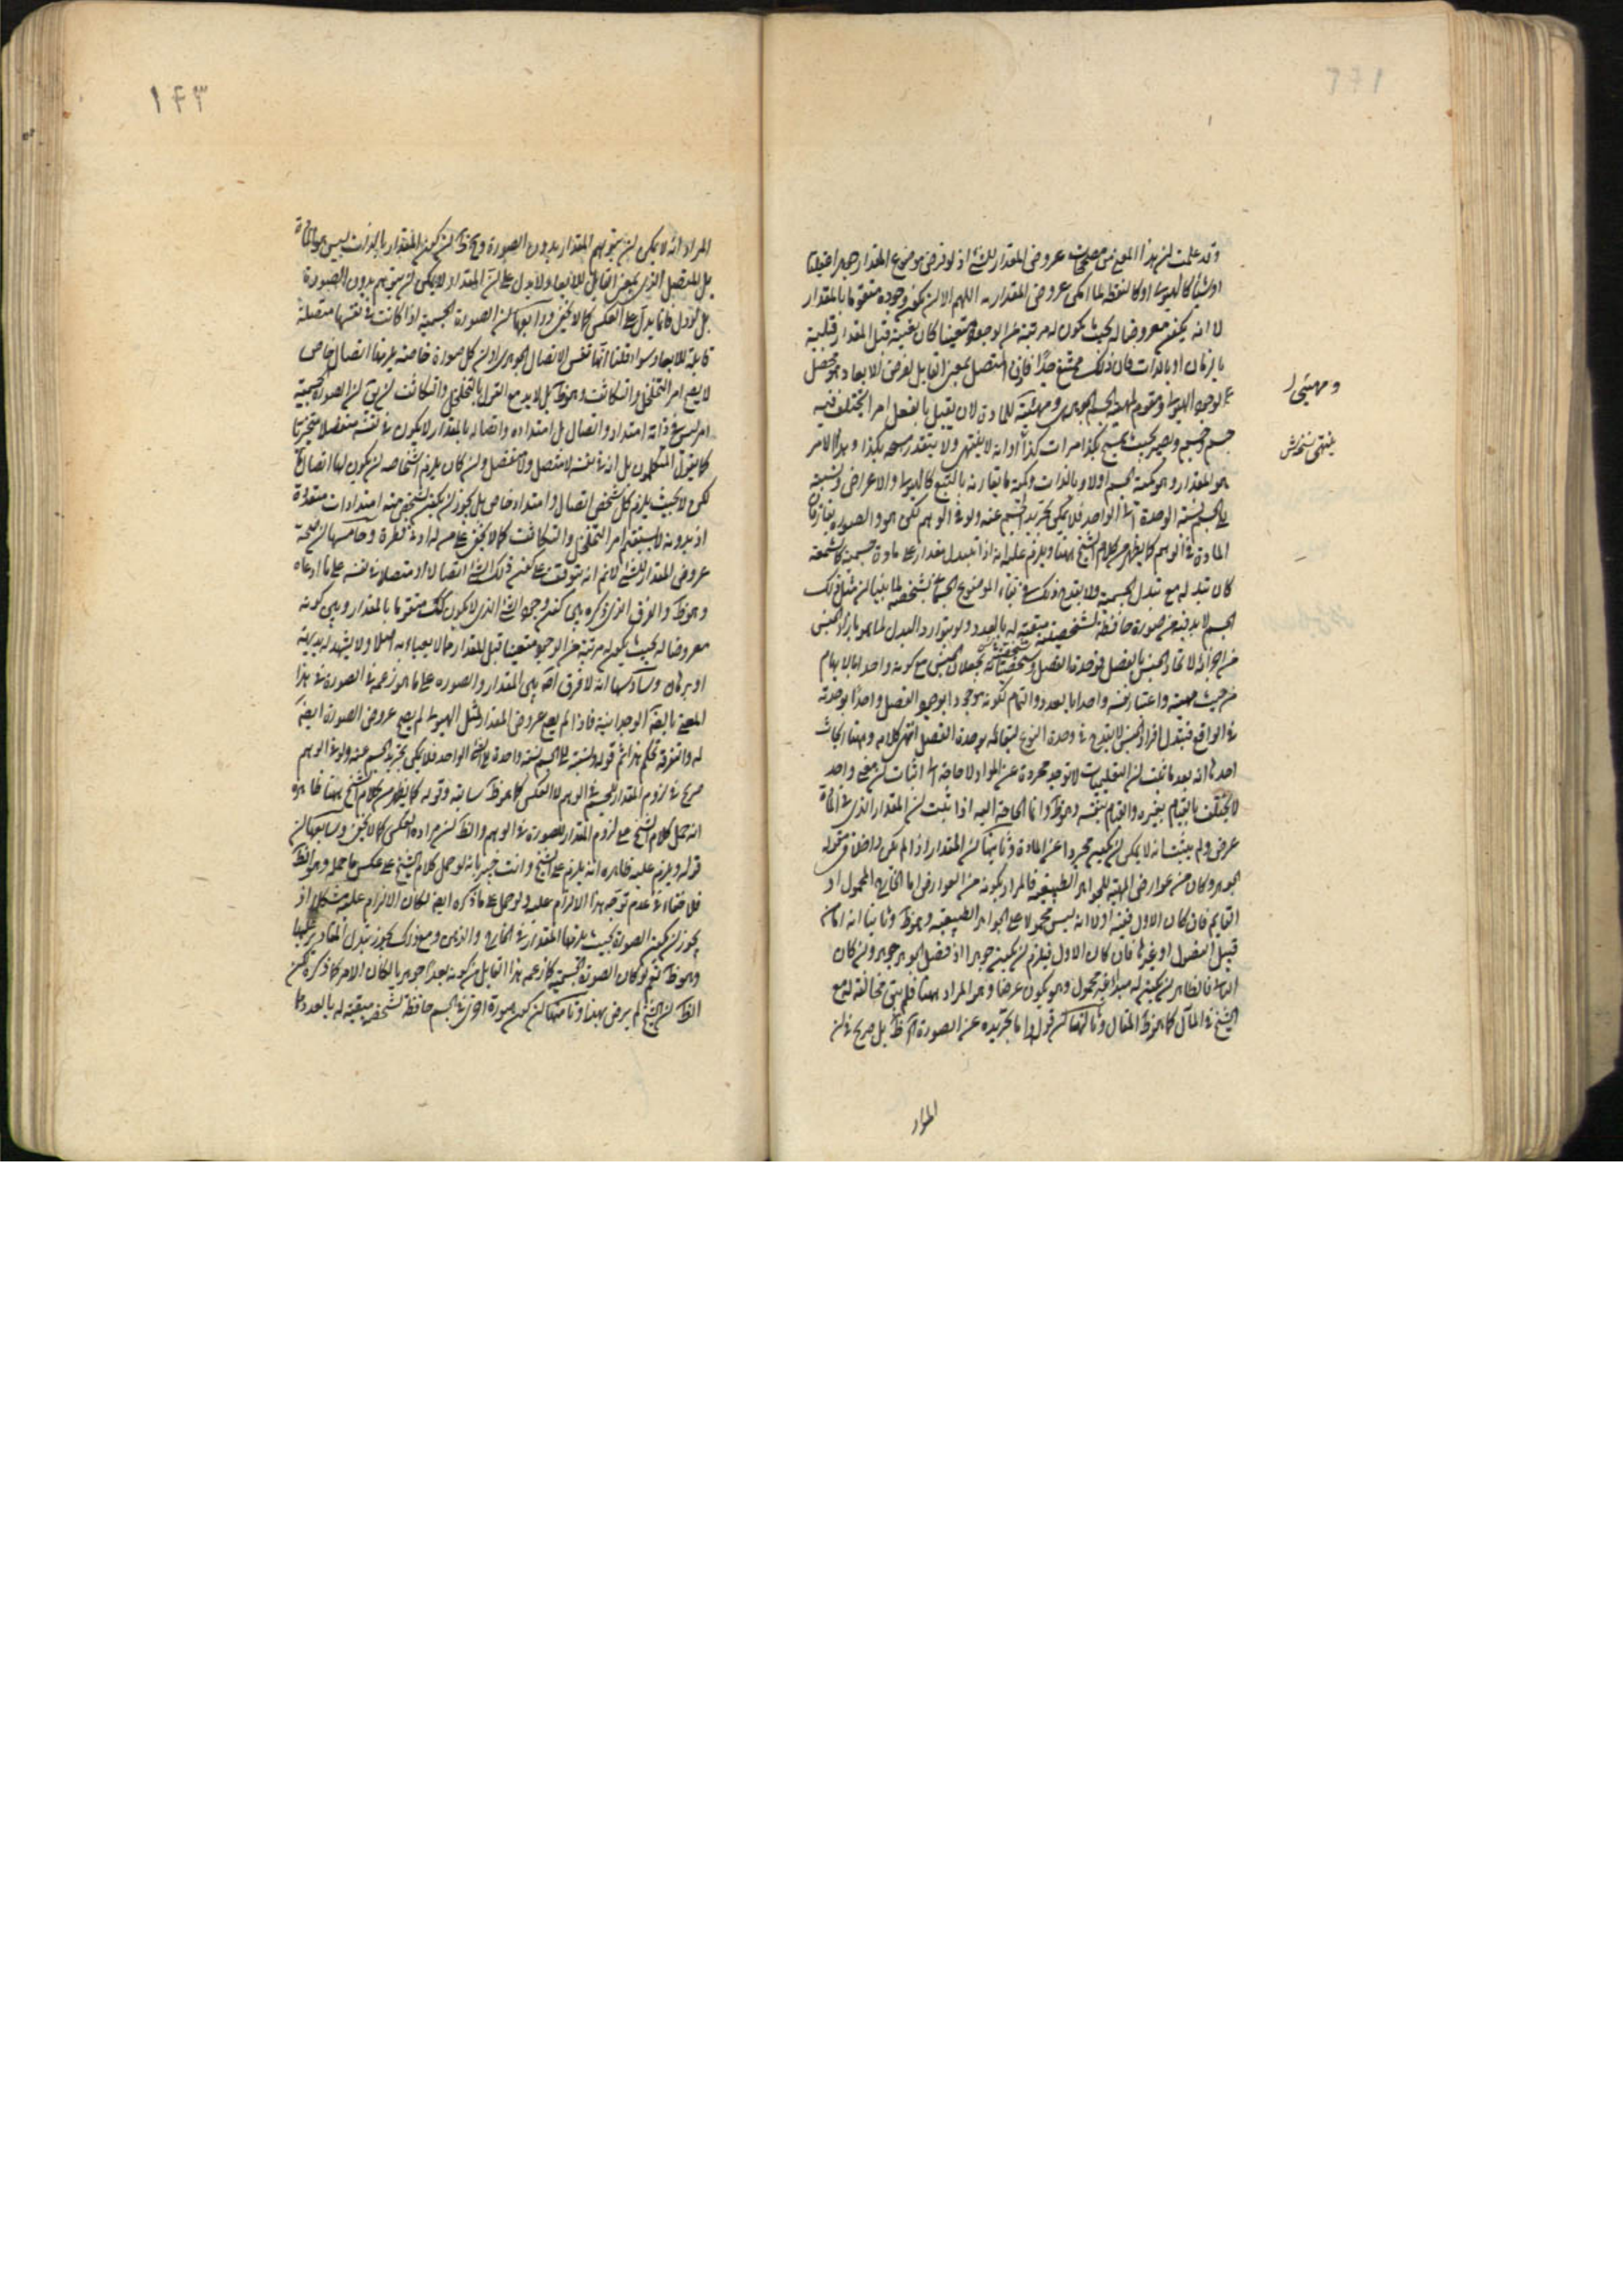 وقد علمت ان هذا المعنى مصحح عروض المقدار للشئ اذ لو فرض موضوع المقدار جوهرا عقليا
او شيئا كالهيولى او كالنقطة لما امكن عروض المقدار له اللهم الا ان يكون وجوده متقوما بالمقدار
لا انه يكون معروضا له بحيث يكون له مرتبة من الوجود متعينا كان بنفسه قبل المقدار قبلية
بالزمان او بالذات فان ذلك ممتنع جدا فاذن المتصل بمعنى القابل لفرض الابعاد محصل
لوجود الهيولى ومقوم لمهية الجسم الجوهرى ومهيئة للمادة لان يقبل بالفعل امرا يختلف فيه
جسم وجسم ويصير بحيث يمسح بكذا مرات كذا او انه لا ينتهى ولا يتقدر مسحه بكذا وهذا الامر
هو المقدار وهو كمية الجسم اولا وبالذات وكمية ما يقارنه بالتبع كالهيولى والاعراض ونسبته
الى الجسم نسبة الوحدة الى الواحد فلا يمكن تجريد الجسم عنه ولو فى الوهم لكن هو والصورة يفارقان
المادة فى الوهم كما يظهر من كلام الشيخ ههنا ويلزم عليه انه اذا تبدل مقدار على مادة جسمية كالشمعة
كان تبدله مع تبدل الجسمية ولا يقدح ذلك فى بقاء الموضوع الجسمانى بشخصه لما بينا ان مثل ذلك
الجسم لا بد فيه من صورة حافظة لشخصيته مبقية له بالعدد ولو بتوارد البدل لما هو بازاء الجنس
من اجزائه لاتحاد الجنس بالفصل فوحدة الفصل وشخصيته تجعلان الجنس مع كونه واحدا بالابهام
من حيث مهيته واعتبار نفسه واحدا بالعدد والتمام لكونه موجودا بوجود الفصل واحدا بوحدته
فى الواقع فتبدل افراد الجنس لا يقدح فى وحدة النوع لبقائه بوحدة الفصل انتهى كلامه وههنا ابحاث
احدها انه بعد ما ثبت ان التعليميات لا توجد مجردة عن المواد لا حاجة الى اثبات ان معنى واحد
لا يختلف بالقيام بغيره والقيام بنفسه وهو ظ وانما الحاجة اليه اذا ثبت ان المقدار الذى فى المادة
عرض ولم يثبت انه لا يمكن ان يكون مجردا عن المادة وثانيها ان المقدار اذا لم يكن داخلا فى مقولة
الجوهر وكان من عوارض المهية للجواهر الطبيعية فالمراد بكونه من العوارض اما الخارج المحمول او
القايم فان كان الاول ففيه اولا انه ليس محمولا على الجواهر الطبيعية وهو ظ وثانيا انه اما من
قبيل الفصول او غيرها فان كان الاول فيلزم ان يكون جوهرا اذ فصل الجوهر جوهر وان كان
الثانى فالظاهر ان يكون له مبدا غير محمول وهو يكون عرضا وهو المراد ههنا فلم يبق مخالفة له مع
الشيخ فى المآل كما هو ظ المقال وثالثها ان قوله واما تجريده عن الصورة الخ ظ بل صريح فى ان
ومهيئى ل
ينتهى
المراد
١٤٣
المراد انه لا يمكن ان يتوهم المقدار بدون الصورة وح ظ ان كون المقدار بالذات ليس هو المادة
بل المتصل الذى بمعنى القابل للابعاد ولا يدل على ان المقدار لا يمكن ان يتوهم بدون الصورة
بل لو دل فانما يدل على العكس كما لا يخفى ورابعها ان الصورة الجسمية اذا كانت فى نفسها متصلة
قابلة للابعاد سواء قلنا انها نفس الاتصال الجوهرى او ان كل صورة خاصة يلزمها اتصال خاص
لا يصح امر التخلخل والتكاثف وهو ظ بل لا بد مع القول بالتخلخل والتكاثف ان يق ان الصورة الجسمية
امر ليس فى ذاته امتداد واتصال بل امتداده واتصاله بالمقدار لا يكون فى نفسه منفصلا متجزيا
كما يقول المتكلمون بل انه فى نفسه لا متصل ولا منفصل وان كان يلزم اشخاصه ان يكون لها اتصال
لكن لا بحيث يلزم كل شخص اتصال وامتداد خاص بل يجوز ان يكون لشخص منه امتدادات متعددة
اذ بدونه لا يستقيم امر التخلخل والتكاثف كما لا يخفى على من له ادنى فطرة وخامسها ان صحة
عروض المقدار للشئ لا نم انه يتوقف على كون ذلك الشئ اتصالا او متصلا فى نفسه على ما ادعاه
وهو ظ والفرق الذى ذكره بين كون وجود الشئ الذى لا يكون كك متقوما بالمقدار وبين كونه
معروضا له بحيث يكون له مرتبة من الوجود متعينا قبل المقدار مما لا يعبأ به اصلا ولا يشهد له بديهة
او برهان وسادسها انه لا فرق اصلا بين المقدار والصورة على ما هو زعمه فى الصورة فى هذا
المعنى بالبقية الوجدانية فاذا لم يصح عروض المقدار لمثل الهيولى لم يصح عروض الصورة ايضا
له والتفرقة تحكم هذا ثم قوله ونسبته الى الجسم نسبة الوحدة الى الواحد فلا يمكن تجريد الجسم عنه ولو فى الوهم
صريح فى لزوم المقدار للجسم فى الوهم لا العكس كما هو ظ سابقه وقوله كما يظهر من كلام الشيخ ههنا ظاهره
انه حمل كلام الشيخ على لزوم المقدار للصورة فى الوهم والظ ان مراده العكس كما لا يخفى وسابعها ان
قوله ويلزم عليه ظاهره انه يلزم على الشيخ وانت خبير بانه لو حمل كلام الشيخ على عكس ما حمله وهو الظ
فلا خفاء فى عدم توجه هذا الالزام عليه ولو حمل على ما ذكره ايضا لكان الالزام عليه مشكلا اذ
يجوز ان يكون الصورة بحيث يلزمها المقدار فى الخارج والذهن ومع ذلك يجوز تبدل المقادير عليها
وهو ظ نعم لو كان الصورة الجسمية كما زعمه هذا القايل من كونه بعدا جوهريا لكان الامر كما ذكره لكن
الظ ان الشيخ لم يرض بهذا وثامنها ان كون صورة اخرى فى الجسم حافظة لشخصه مبقية له بالعدد مما